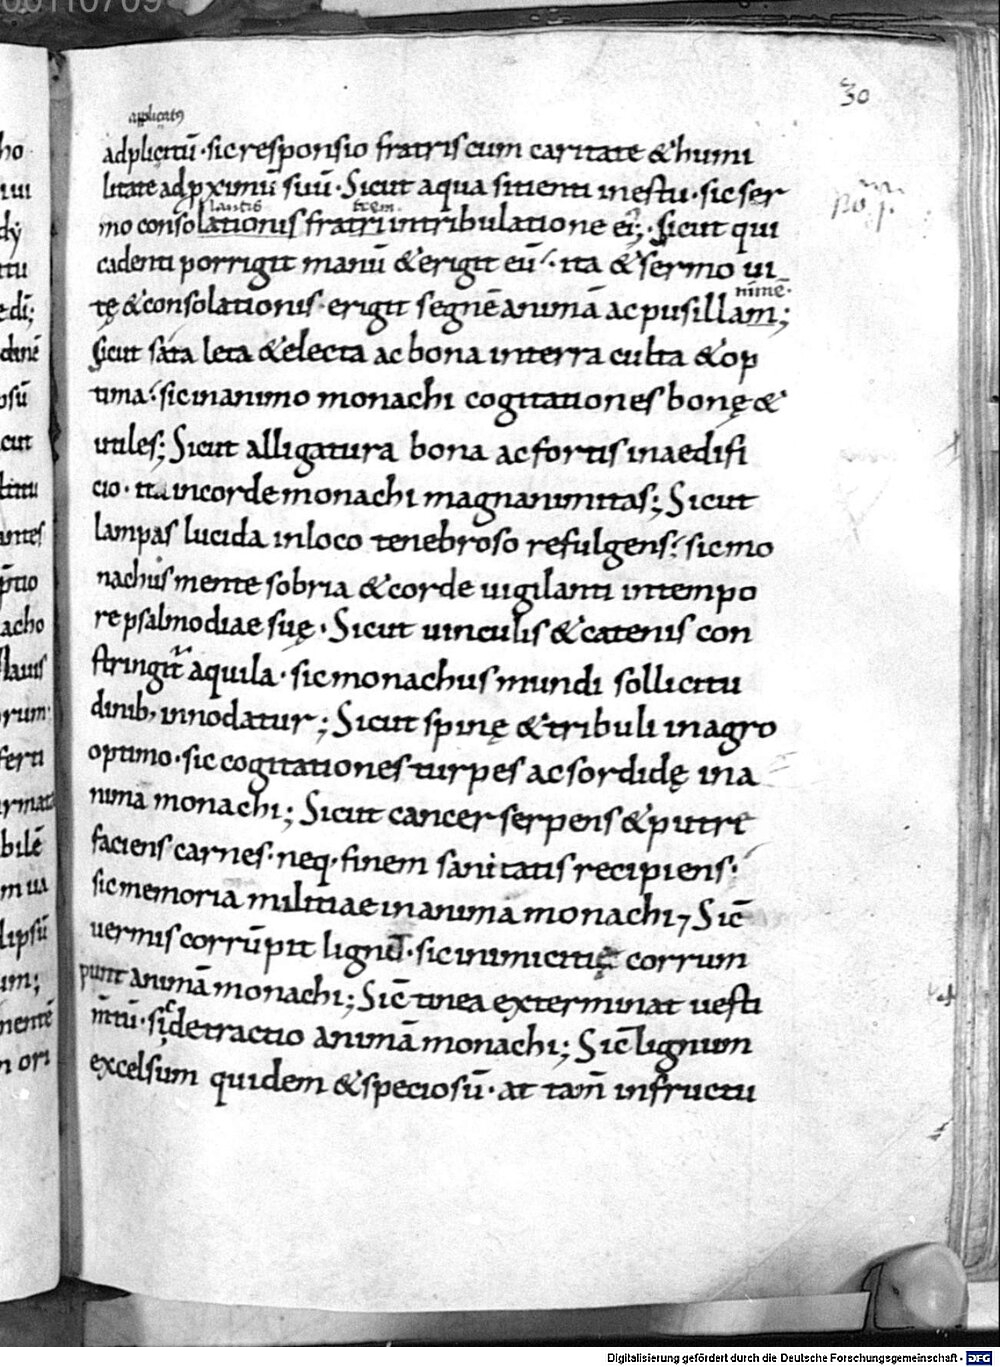 30
applicatꝰ
adplicitū · sic responsio fratris cum caritate & humi
litate ad pximū suū · Sicut aqua sitienti in estu · sic ser
lantis frem
mo consolationis fratri in tribulatione ei; · Sicut qui
cadenti porrigit manū & erigit eū · ita & sermo ui
tę & consolationis · erigit segnē animā ac pusillam;
nimē ·
Sicut sata leta & electa ac bona in terra culta & op
tima · sic in animo monachi cogitationes bonę &
utiles; Sicut alligatura bona ac fortis in aedifi
cio · ita in corde monachi magnanimitas; Sicut
lampas lucida in loco tenebroso refulgens · sic mo
nachus mente sobria & corde uigilanti in tempo
re psalmodiae suę · Sicut uinculis & catenis con
stringit̄ aquila · sic monachus mundi sollicitu
dinib; innodatur; Sicut spinę & tribuli in agro
optimo · sic cogitationes turpes ac sordidę in a
nima monachi; Sicut cancer serpens & putre
faciens carnes · neq · finem sanitatis recipiens ·
sic memoria militiae in anima monachi; Sic̄
uermis corrūpit lignū · sic inimicitię corrum
punt animā monachi; Sic̄ tinea exterminat uesti
m̄tū · sic detractio animā monachi; Sic̄ lignum
excelsum quidem & speciosū · at tam̄ infructu
Digitalisierung gefördert durch die Deutsche Forschungsgemeinschaft - DFG